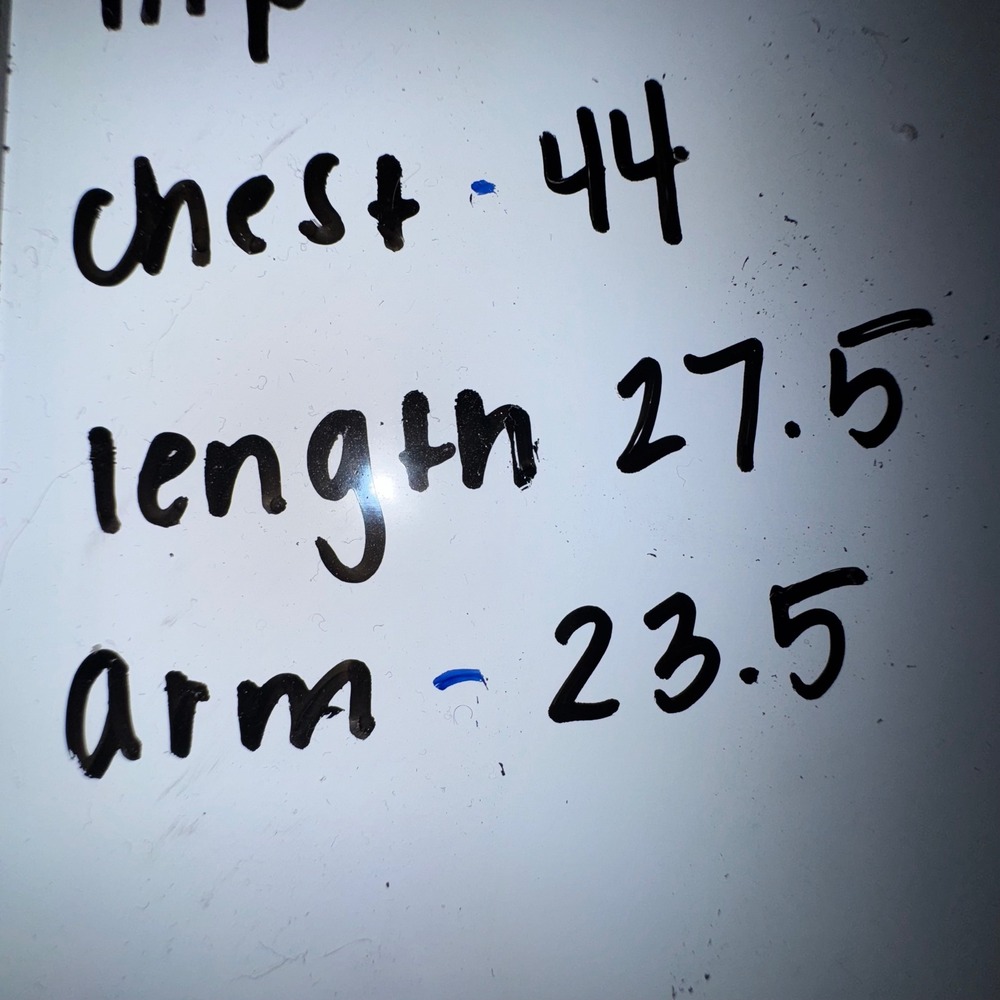 chest - 44
length 27.5
arm - 23.5